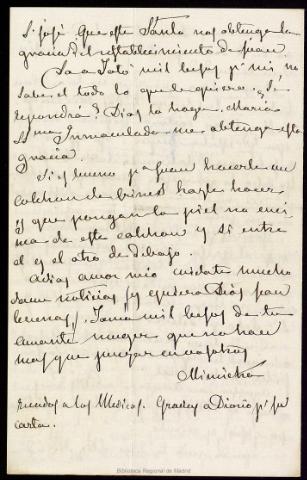 S. José. Que este Santo nos obtenga la
gracia del restablecimiento de Juan
Da a Totó mil besos pr. mi no
sabe él todo lo que le quiero. ¿Se
repondrá? Dios lo haga. María
Sma Inmaculada me obtenga esta
gracia.
Si es bueno pa Juan hacerle un
colchon de hazle hacer
y que pongan la piel no enci-
ma de este colchon y si entre
el y el otro de debajo.
Adios amor mio cuidate mucho
dame noticias (y quiera Dios sean
buenas). Toma mil besos de tu
amante muger que no hace
mas que pensar en vosotros
Mimicha
recuerdos a los Medicos. Gracias a pr. su
carta.
Biblioteca Regional de Madrid